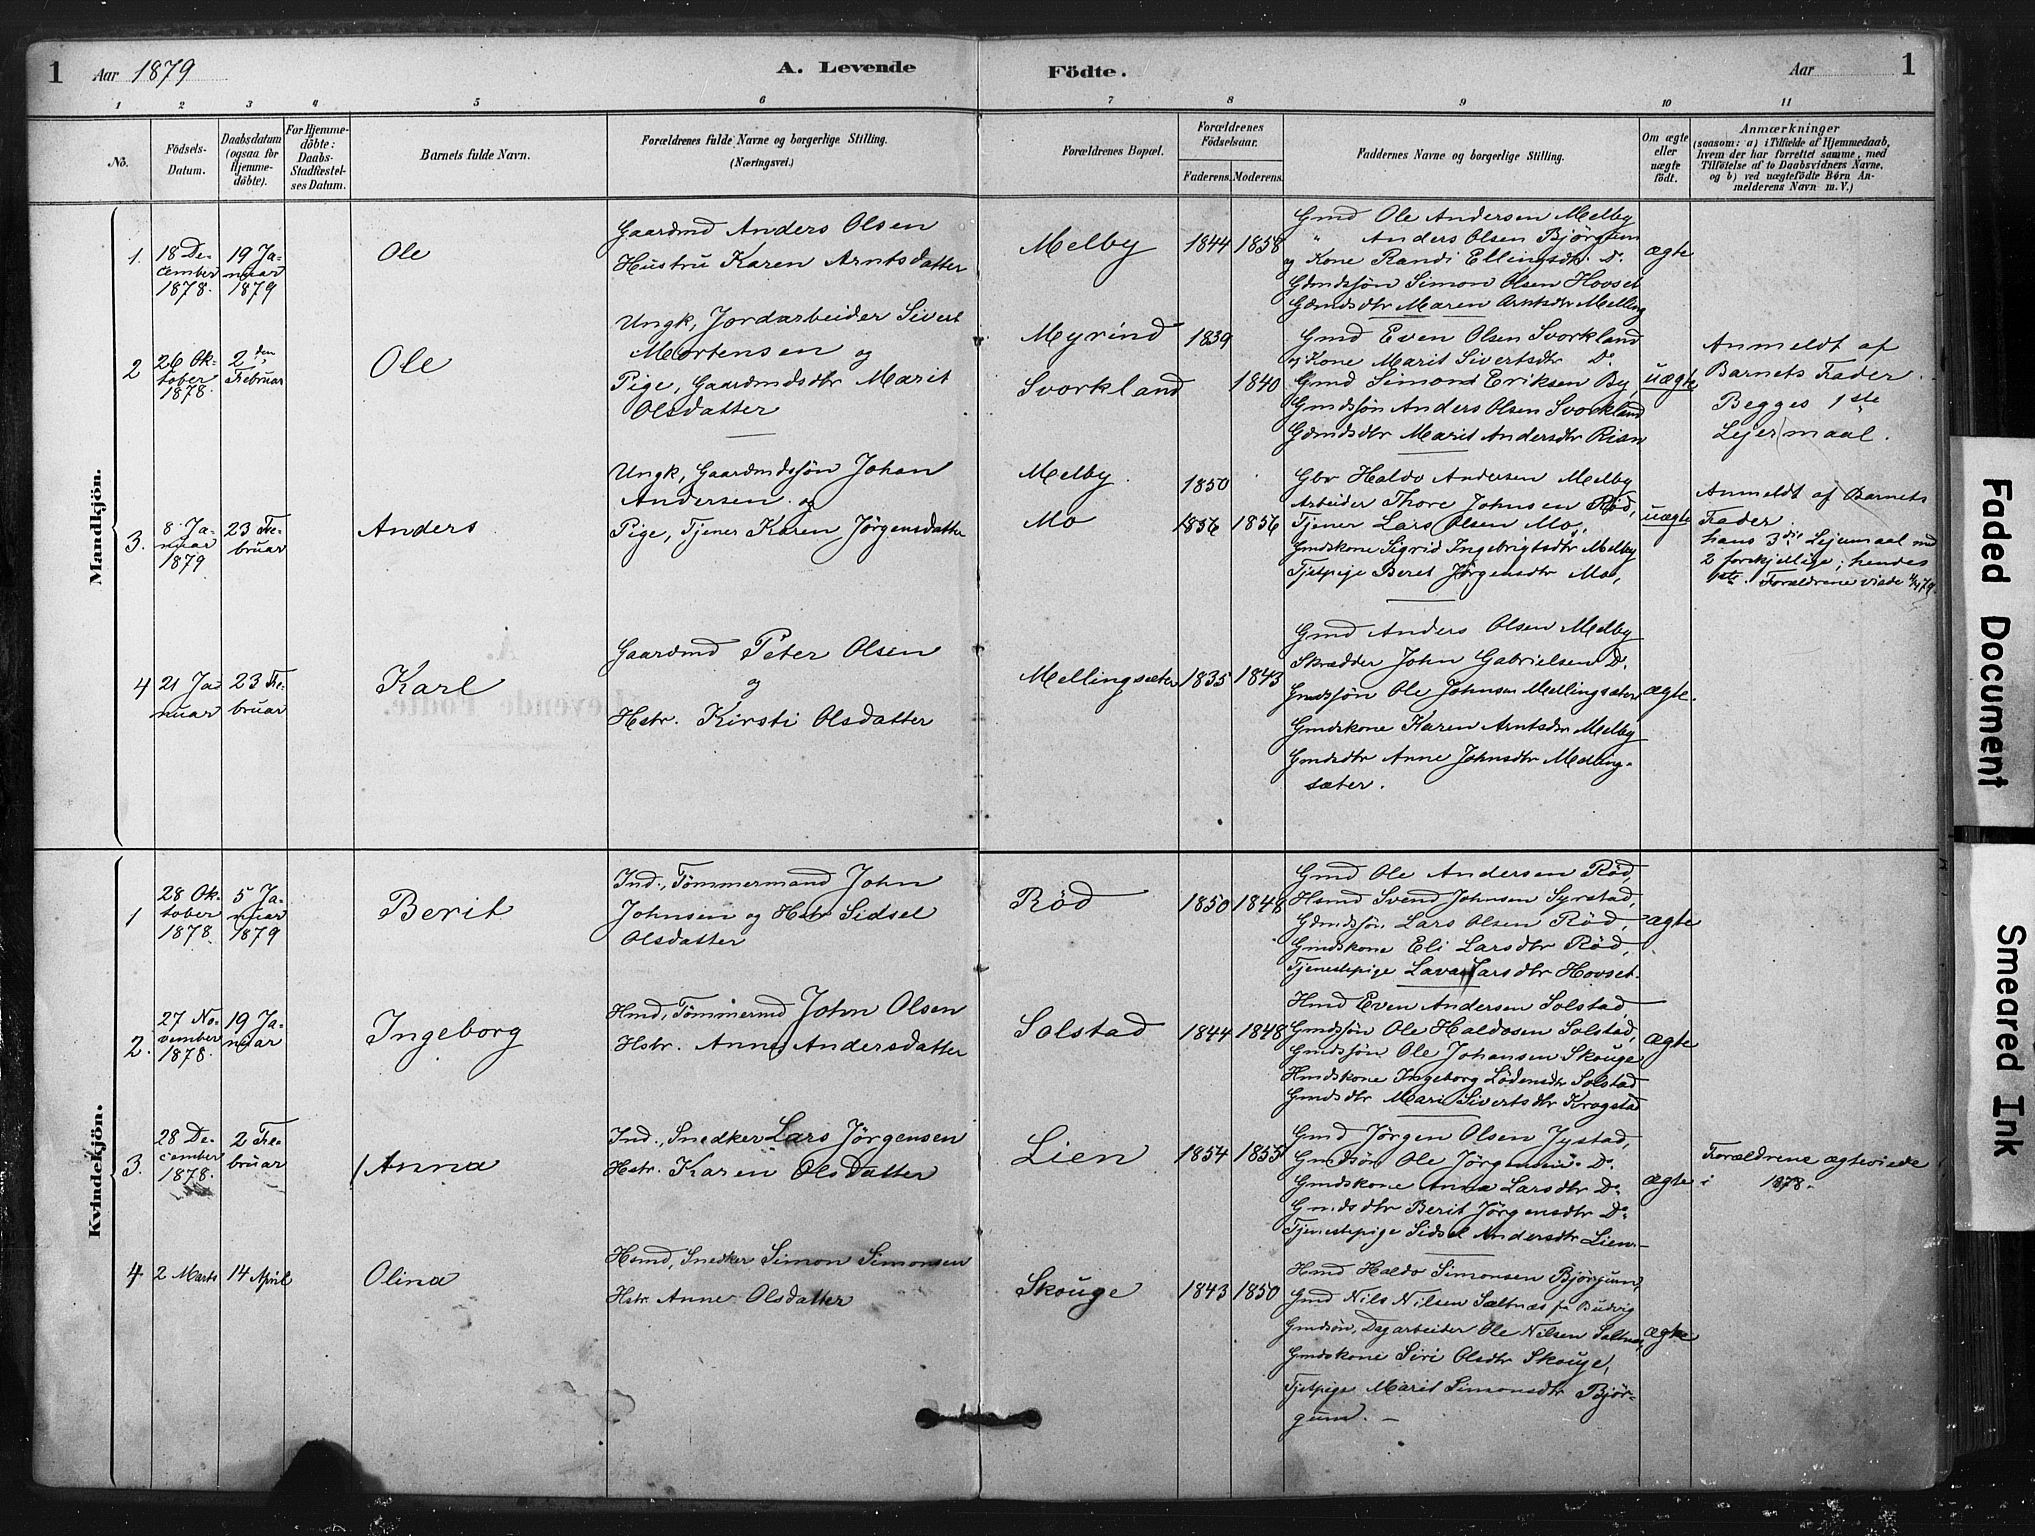 1 Aar 1879 A. Levende Födte. Aar 1
1 2 3 4 5 6 7 8 9 10 11
No.
Födsels-
Datum.
Daabsdatum
(ogsaa for
Hjemme-
döbte).
For Hjemme-
döbte:
Daabs-
Stadfæstel-
ses Datum.
Barnets fulde Navn.
Forældrenes fulde Navne og borgerlige Stilling.
(Næringsvei.)
Forældrenes Bopæl.
Forældrenes
Födselsaar.
Faderens. Moderens.
Faddernes Navne og borgerlige Stilling.
Om ægte
eller
uægte
födt.
Anmærkninger
(saasom: a) i Tilfælde af Hjemmedaab,
hvem der har forrettet samme, med
Tilföielse af to Daabsvidners Navne,
og b) ved uægtefödte Børn An-
melderens Navn m. V.)
Mandkjön.
1.
18 De-
cember
1878.
19 Ja-
nuar
1879
Ole
Gaardmd Anders Olsen
Hustru Karen Arntsdatter
Melby
1844 1858
Gmd Ole Andersen Melby
" Anders Olsen Björgum
og Kone Randi Ellingsdtr. Do.
Gdmdssön Simon Olsen Hovset
Gdmdsdtr Maren Arntsdtr Melby
ægte
2
26 Ok-
tober
1878.
2den
Februar
Ole
Ungk, Jordarbeider Sivert
Mortensen og
Pige, Gaardmdsdtr Marit
Olsdatter
Myrind
Svorkland
1839
1840
Gmd Even Olsen Svorkland
og Kone Marit Sivertsdtr Do.
Gmd Simon Eriksen By,
Gmdssön Anders Olsen Svorkland
Gdmdsdtr Marit Andersdtr
uægte
Anmeldt af
Barnets Fader.
Begges 1ste
Lejermaal.
3.
8 Ja-
nuar
1879
23 Fe-
bruar
Anders
Ungk, Gaardmdssjön Johan
Andersen og
Pige, Tjener Karen Jörgensdatter
Melby.
Mo
1850
1856 1856
Gbr Haldo Andersen Melby
Arbeider Thore Johnsen Röd,
Tjener Lars Olsen Mo,
Gmdskone Sigrid Ingebrigtsdtr Melby
Tjstpige Beret Jörgensdtr Mo,
uægte
Anmeldt af Barnets
Fader.
hans 3die Lejermaal md
2 forskjellige; hendes
1ste. Forældrene viede
4
21 Ja
nuar
23 Fe-
bruar
Karl
Gaardmd Peter Olsen
og
Hstr. Kirsti Olsdatter
Mellingsæter
1835 1843
Gmd Anders Olsen Melby
Skrædder John Gabrielsen Do.
Gmdssjön Ole Johnsen Mellingsæter
Gmdskone Karen Arntsdtr Melby
Gmdsdtr Anne Johnsdtr Melling-
sæter.
ægte.
Kvindekjön.
1
28 Ok-
tober
1878.
5 Ja-
nuar
1879
Berit
Ind., Tömmermand John
Johnsen og Hstr Sidsel
Olsdatter
Röd
1850 1848
Gmd Ole Andersen Röd,
Hsmd Svend Johnsen Syrstad,
Gdmdssjön Lars Olsen Röd,
Gmdskone Eli Larsdtr Röd,
Tjenestepige Larsdtr Hovset.
ægte
2.
27 No-
vember
1878.
19 Ja-
nuar
Ingeborg
Hmd, Tömmermd John Olsen
Hstr. Anne Andersdatter
Solstad
1844 1848
Hmd Even Andersen Solstad,
Gmdssjön Ole Haldosen Solstad,
Gmdssjön Ole Johansen Skouge
Hmdskone Ingeborg Lödensdtr Solstad
Gmdsdtr Marit Sivertsdtr Krogstad
ægte
3.
28 De-
cember
1878.
2 Fe-
bruar
Anna
Ind., Snedker Lars Jörgensen
Hstr. Karen Olsdatter
Lien
1854 1855
Gmd Jörgen Olsen Jystad,
Gmdssön Ole Jörgensen Do.
Gmdskone Anna Larsdtr Do.
Gmdsdtr Berit Jörgensdtr Do.
Tjenestepige Sidsel Andersdtr Lien.
ægte
Forældrene ægteviede
i 1878.
4.
2 Marts
14 April
Olina
Hsmd, Snedker Simon Simonsen
Hstr. Anne Olsdatter
Skouge
1843 1850
Hmd Haldo Simonsen Björgum,
Gmd Nils Nilsen Saltnæs pa Budvig
Gmdsön, Dagarbeider Ole Nilsen Saltnæs,
Gmdskone Siri Olsdtr Skouge,
Tjstpige Marit Simonsdtr Björ-
gum.
ægte
Faded Document
Smeared Ink